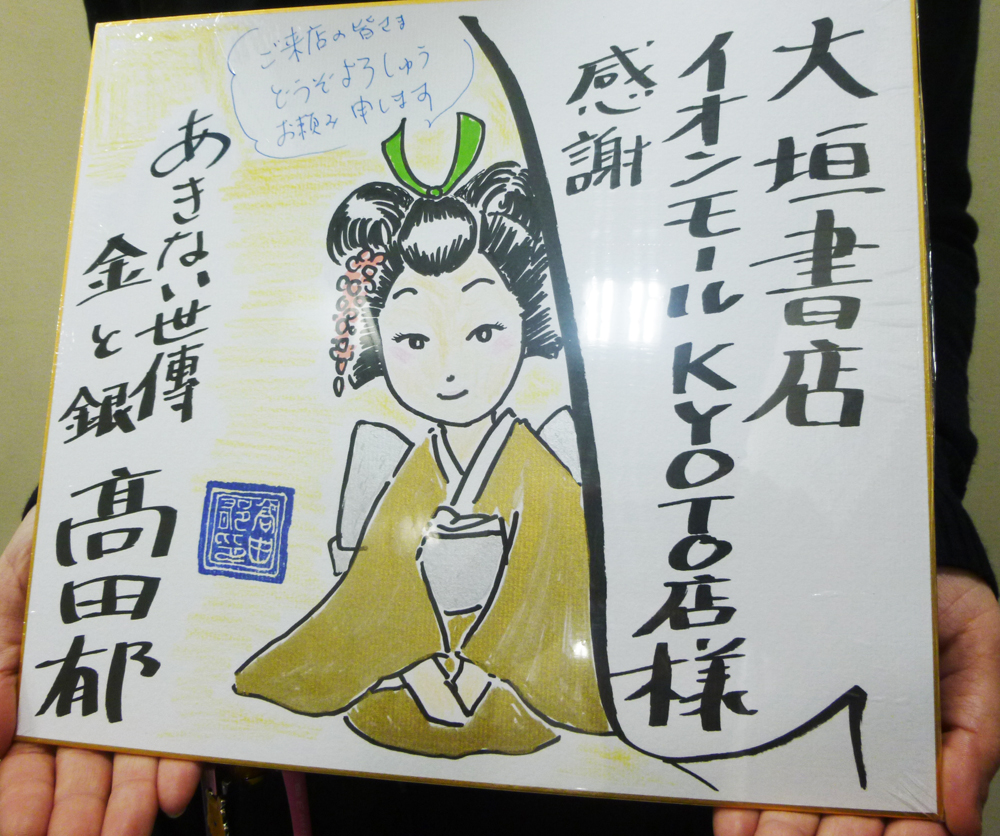 大垣書店
イオンモールKYOTO店様
感謝
ご来店の皆さま
どうぞよろしゅう
お頼み申します
あきない世傳
金と銀
髙田郁